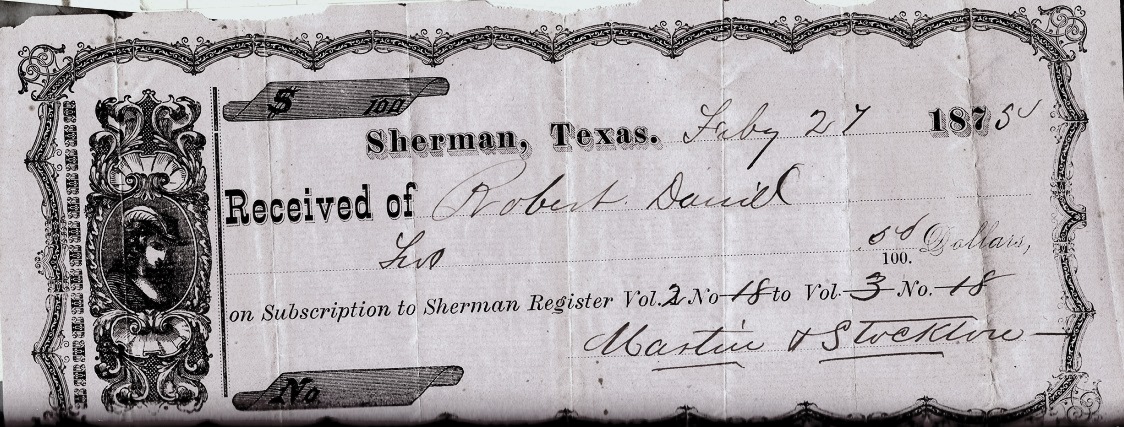 $ 100
Sherman, Texas. Feby 27 1875
Received of Robert Daniel
Two 50/100. Dollars,
on Subscription to Sherman Register Vol. 2 No 18 to Vol. 3 No. 18
Martin & Stockton
No